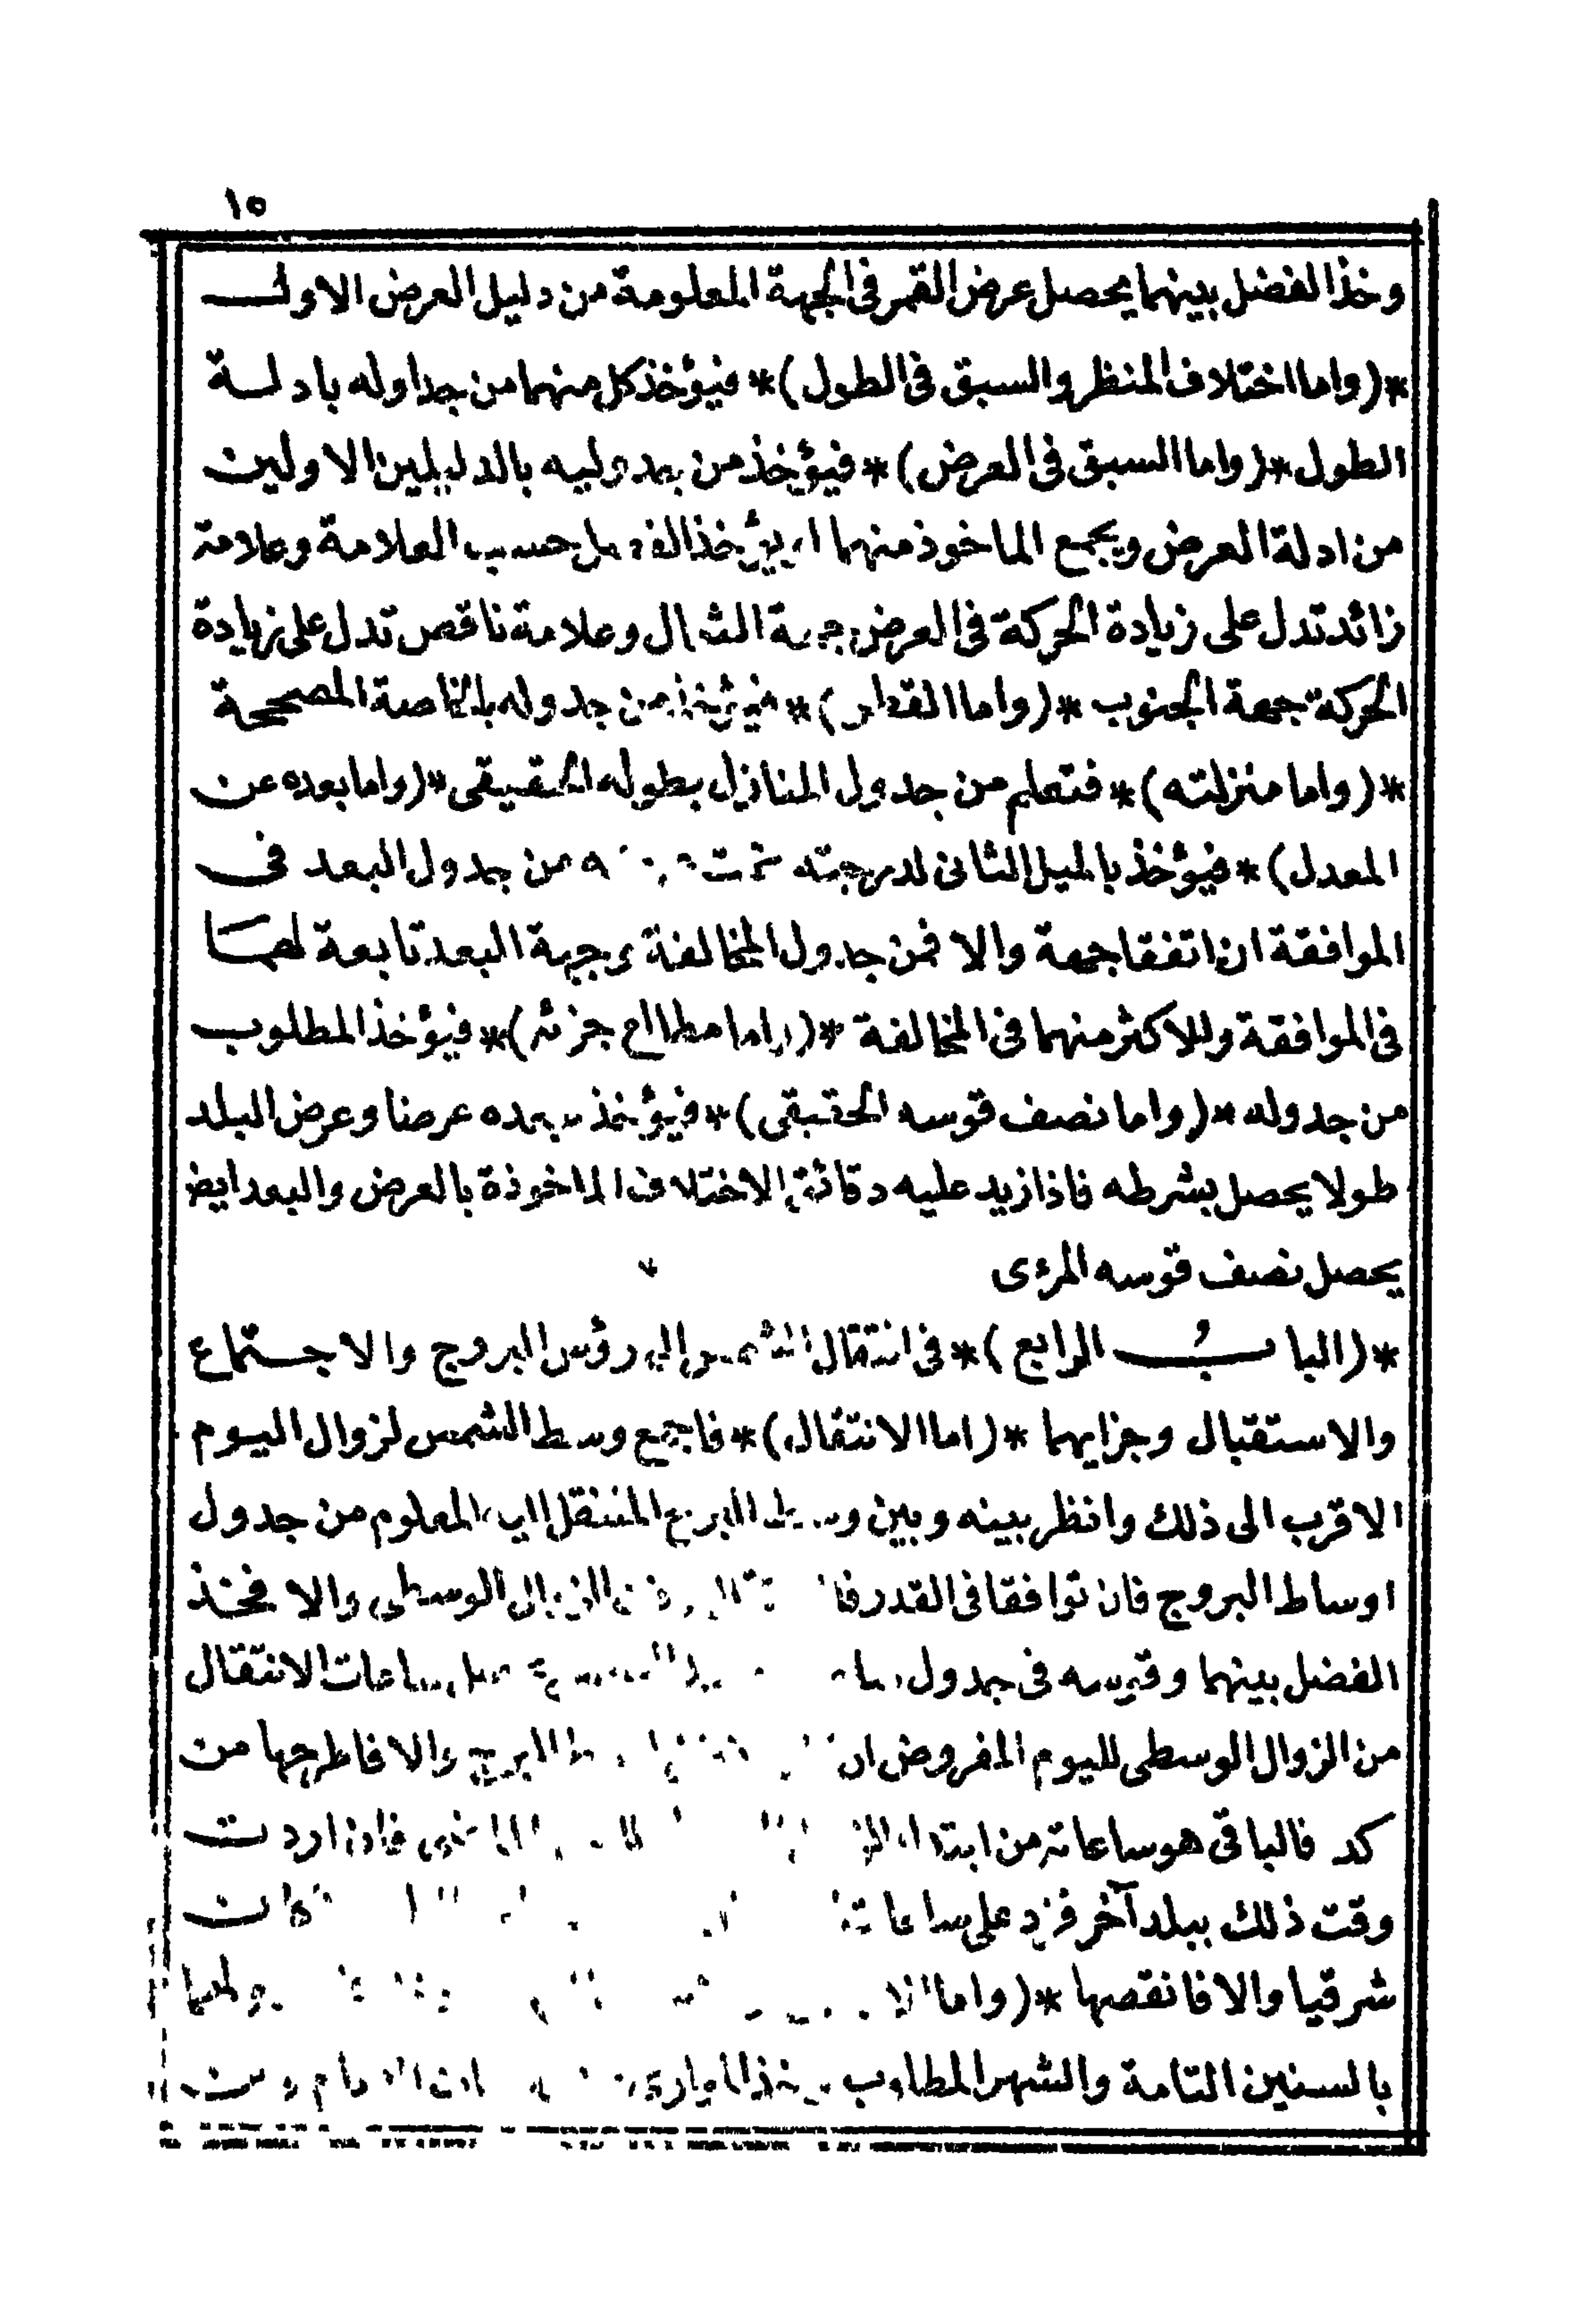 ١٥
وخذ الفضل بينهما يحصل عرض القمر فى الجهة المعلومة من دليل العرض الاول
*(واما اختلاف المنظر والسبق فى الطول)* فيؤخذ كل منهما من جداوله بادلة
الطول *(واما السبق فى العرض)* فيؤخذ من جدوليه بالدليلين الاولين
من ادلة العرض ويجمع الماخوذ منهما او يؤخذ الفضل حسب العلامة وعلامة
زائد تدل على زيادة الحركة فى العرض جهة الشمال وعلامة ناقص تدل على زيادة
الحركة جهة الجنوب *(واما القطر)* فيؤخذ من جدوله بالخاصة المصححة
*(واما منزلته)* فتعلم من جدول المنازل بطوله الحقيقى *(واما بعده عن
المعدل)* فيؤخذ بالميل الثانى لدرجته من جدول البعد فى
الموافقة ان اتفقا جهة والا فمن جدول المخالفة وجهة البعد تابعة لهما
فى الموافقة وللاكثر منهما فى المخالفة *(واما مطالع جزئه)* فيؤخذ المطلوب
من جدوله *(واما نصف قوسه الحقيقى)* فيؤخذ ببعده عرضا وعرض البلد
طولا يحصل بشرطه فاذا زيد عليه دقائق الاختلاف الماخوذة بالعرض والبعد ايضا
يحصل نصف قوسه المرءى
*(الباب الرابع)* فى انتقال الشمس الى رؤس البروج والاجتماع
والاستقبال وجزايهما *(اما الانتقال)* فاجمع وسط الشمس لزوال اليوم
الاقرب الى ذلك وانظر بينه وبين وسط البرج المنتقل اليه المعلوم من جدول
اوساط البروج فان توافقا فى القدر الزوال الوسطى والا فخذ
الفضل بينهما وقوسه فى جدول ساعات الانتقال
من الزوال الوسطى لليوم المفروض ان البرج والا فاطرحها من
كد فالباقى هو ساعاته من ابتداء فان اردت
وقت ذلك ببلد آخر فزد على ساعاته كانت
شرقيا والا فانقصها *(واما
بالسنين التامة والشهر المطلوب